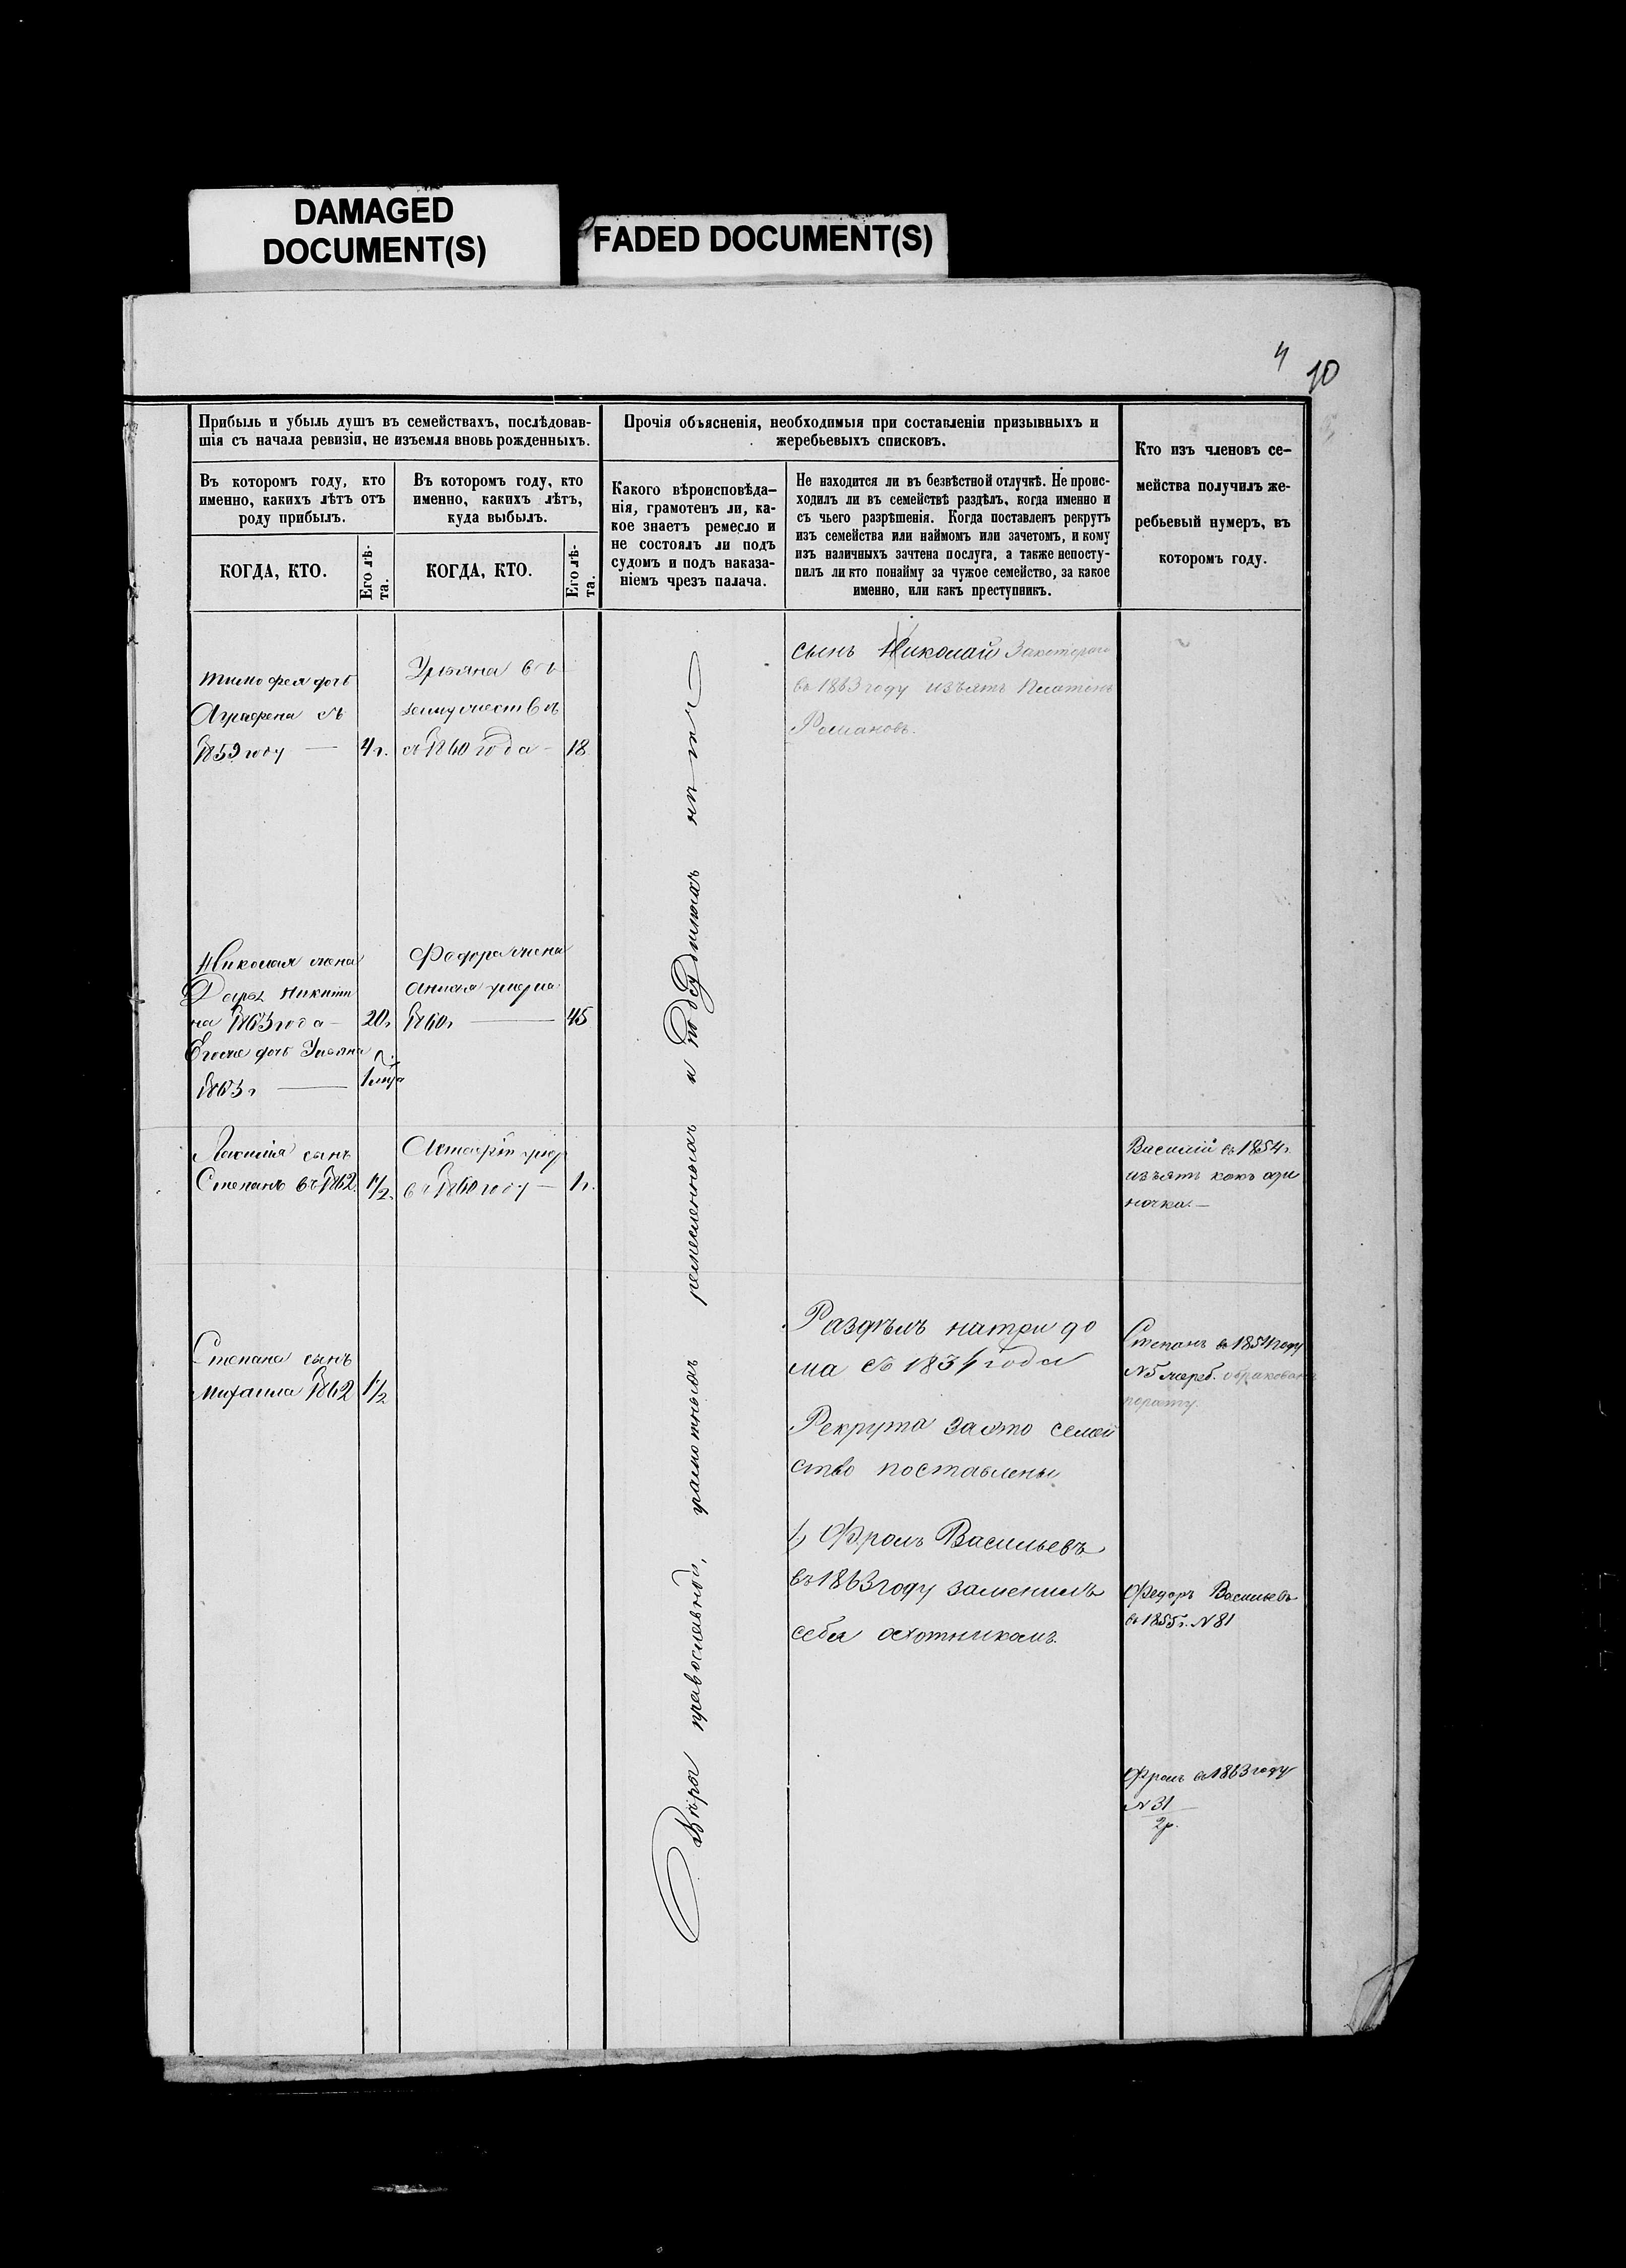 DAMAGED
DOCUMENT(S)
FADED DOCUMENT(S)
4
10
Прибыль и убыль душъ въ семействахъ, послѣдовав-
шія съ начала ревизіи, не изъемля вновь рожденныхъ.
Прочія объясненія, необходимыя при составленіи призывныхъ и
жеребьевыхъ списковъ.
Кто изъ членовъ се-
мейства получилъ же-
ребьевый нумеръ, въ
которомъ году.
Въ которомъ году, кто
именно, какихъ лѣтъ отъ
роду прибылъ.
Въ которомъ году, кто
именно, какихъ лѣтъ,
куда выбылъ.
Какого вѣроисповѣда-
нія, грамотенъ ли, ка-
кое знаетъ ремесло и
не состоялъ ли подъ
судомъ и подъ наказа-
ніемъ чрезъ палача.
Не находится ли въ безвѣстной отлучкѣ. Не проис-
ходилъ ли въ семействѣ раздѣлъ, когда именно и
съ чьего разрѣшенія. Когда поставленъ рекрутъ
изъ семейства или наймомъ или зачетомъ, и кому
изъ наличныхъ зачтена послуга, а также непосту-
пилъ ли кто понайму за чужое семейство, за какое
именно, или какъ преступникъ.
КОГДА, КТО.
Его лѣ-
та.
КОГДА, КТО.
Его лѣ-
та.
Тимофея дочь
Аграфена съ
1859 году
4 г.
Ульяна въ
замужествѣ
съ 1860 года
18
Николая жена
Дарья Никити
на 1863 года
20
Егоже дочь Ульяна
1863 г
1
Федора жена
1860 г
45
сынъ
Степанъ въ 1862
1/2
въ 1860 году
1 г.
Степана сынъ
Михаила 1862
1/2
Вѣра православной, грамотныхъ ремесленныхъ и подсудимыхъ нѣтъ
сынъ Николай за котораго
въ 1863 году изъятъ
Романовъ.
Раздѣлъ на три до
ма съ 1834 года
Рекрута за это семей
ство поставлены
1, Фролъ Васильевъ
въ 1863 году заменилъ
себя охотникомъ.
Василій въ 1854 г.
изъятъ какъ оди
ночка.
Степанъ въ 1854 году
№ 5 жереб. обракованъ
Федоръ Васильевъ
въ 1855 г. № 81
Фролъ въ 1863 году
№ 31
2 р.